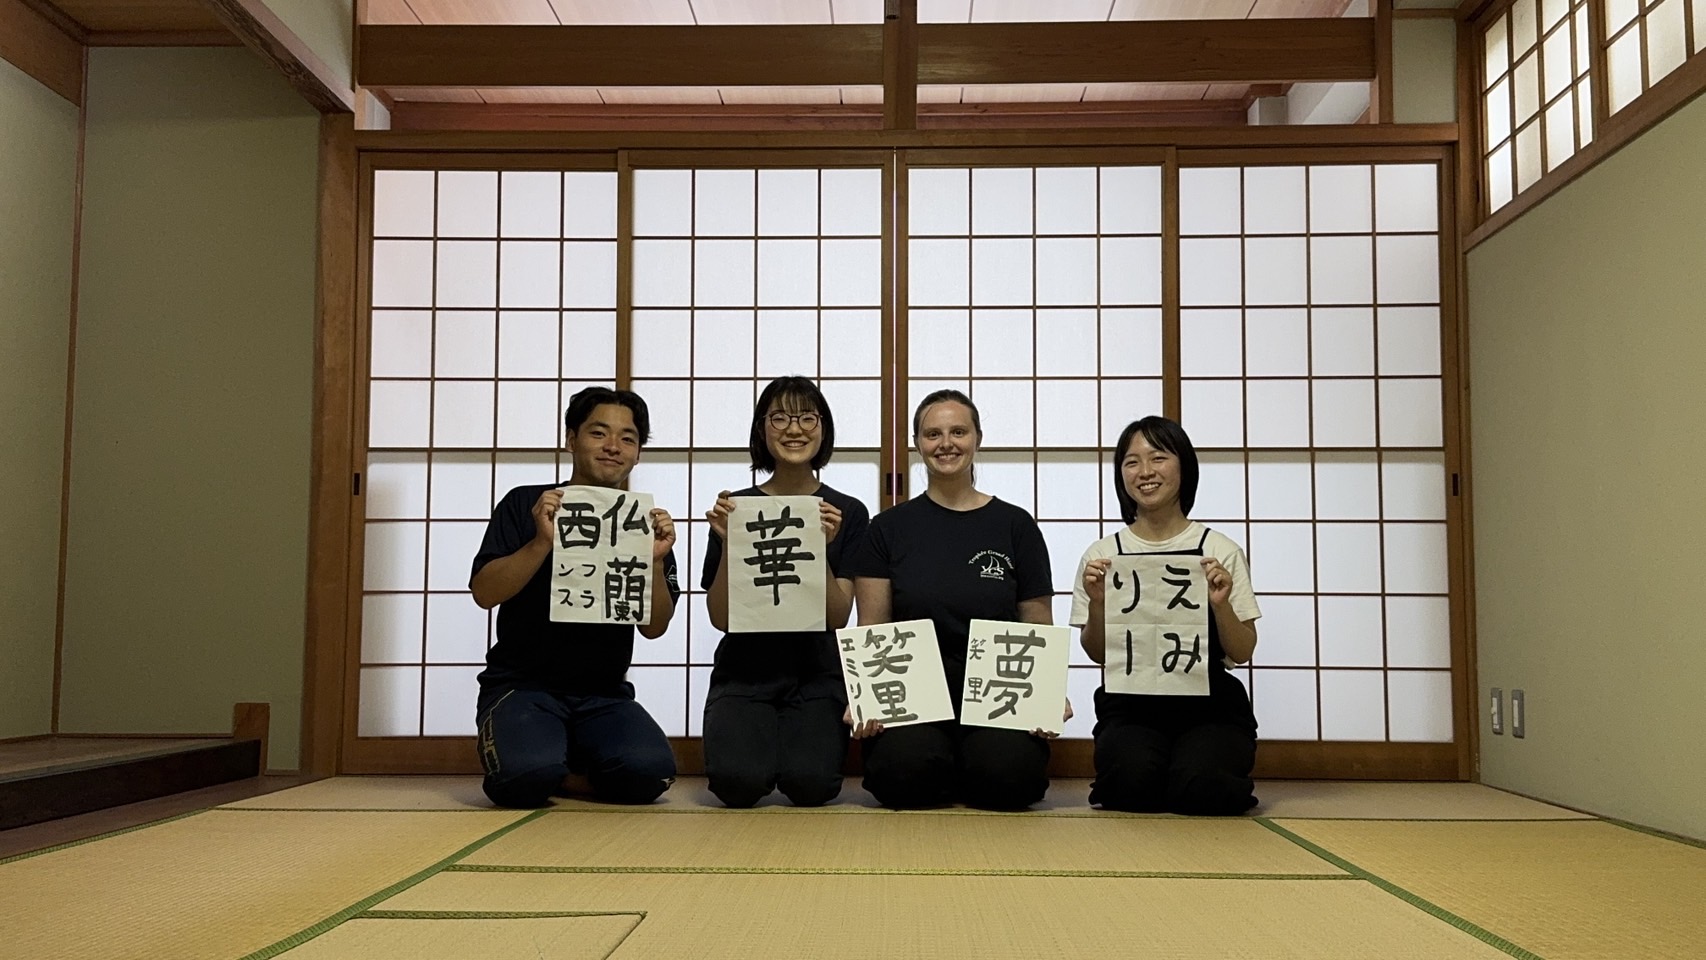 仏蘭
西
フラ
ンス
華
笑里
エミリー
夢
笑里
えみ
りー
Trophée Grand Hotel
YCS